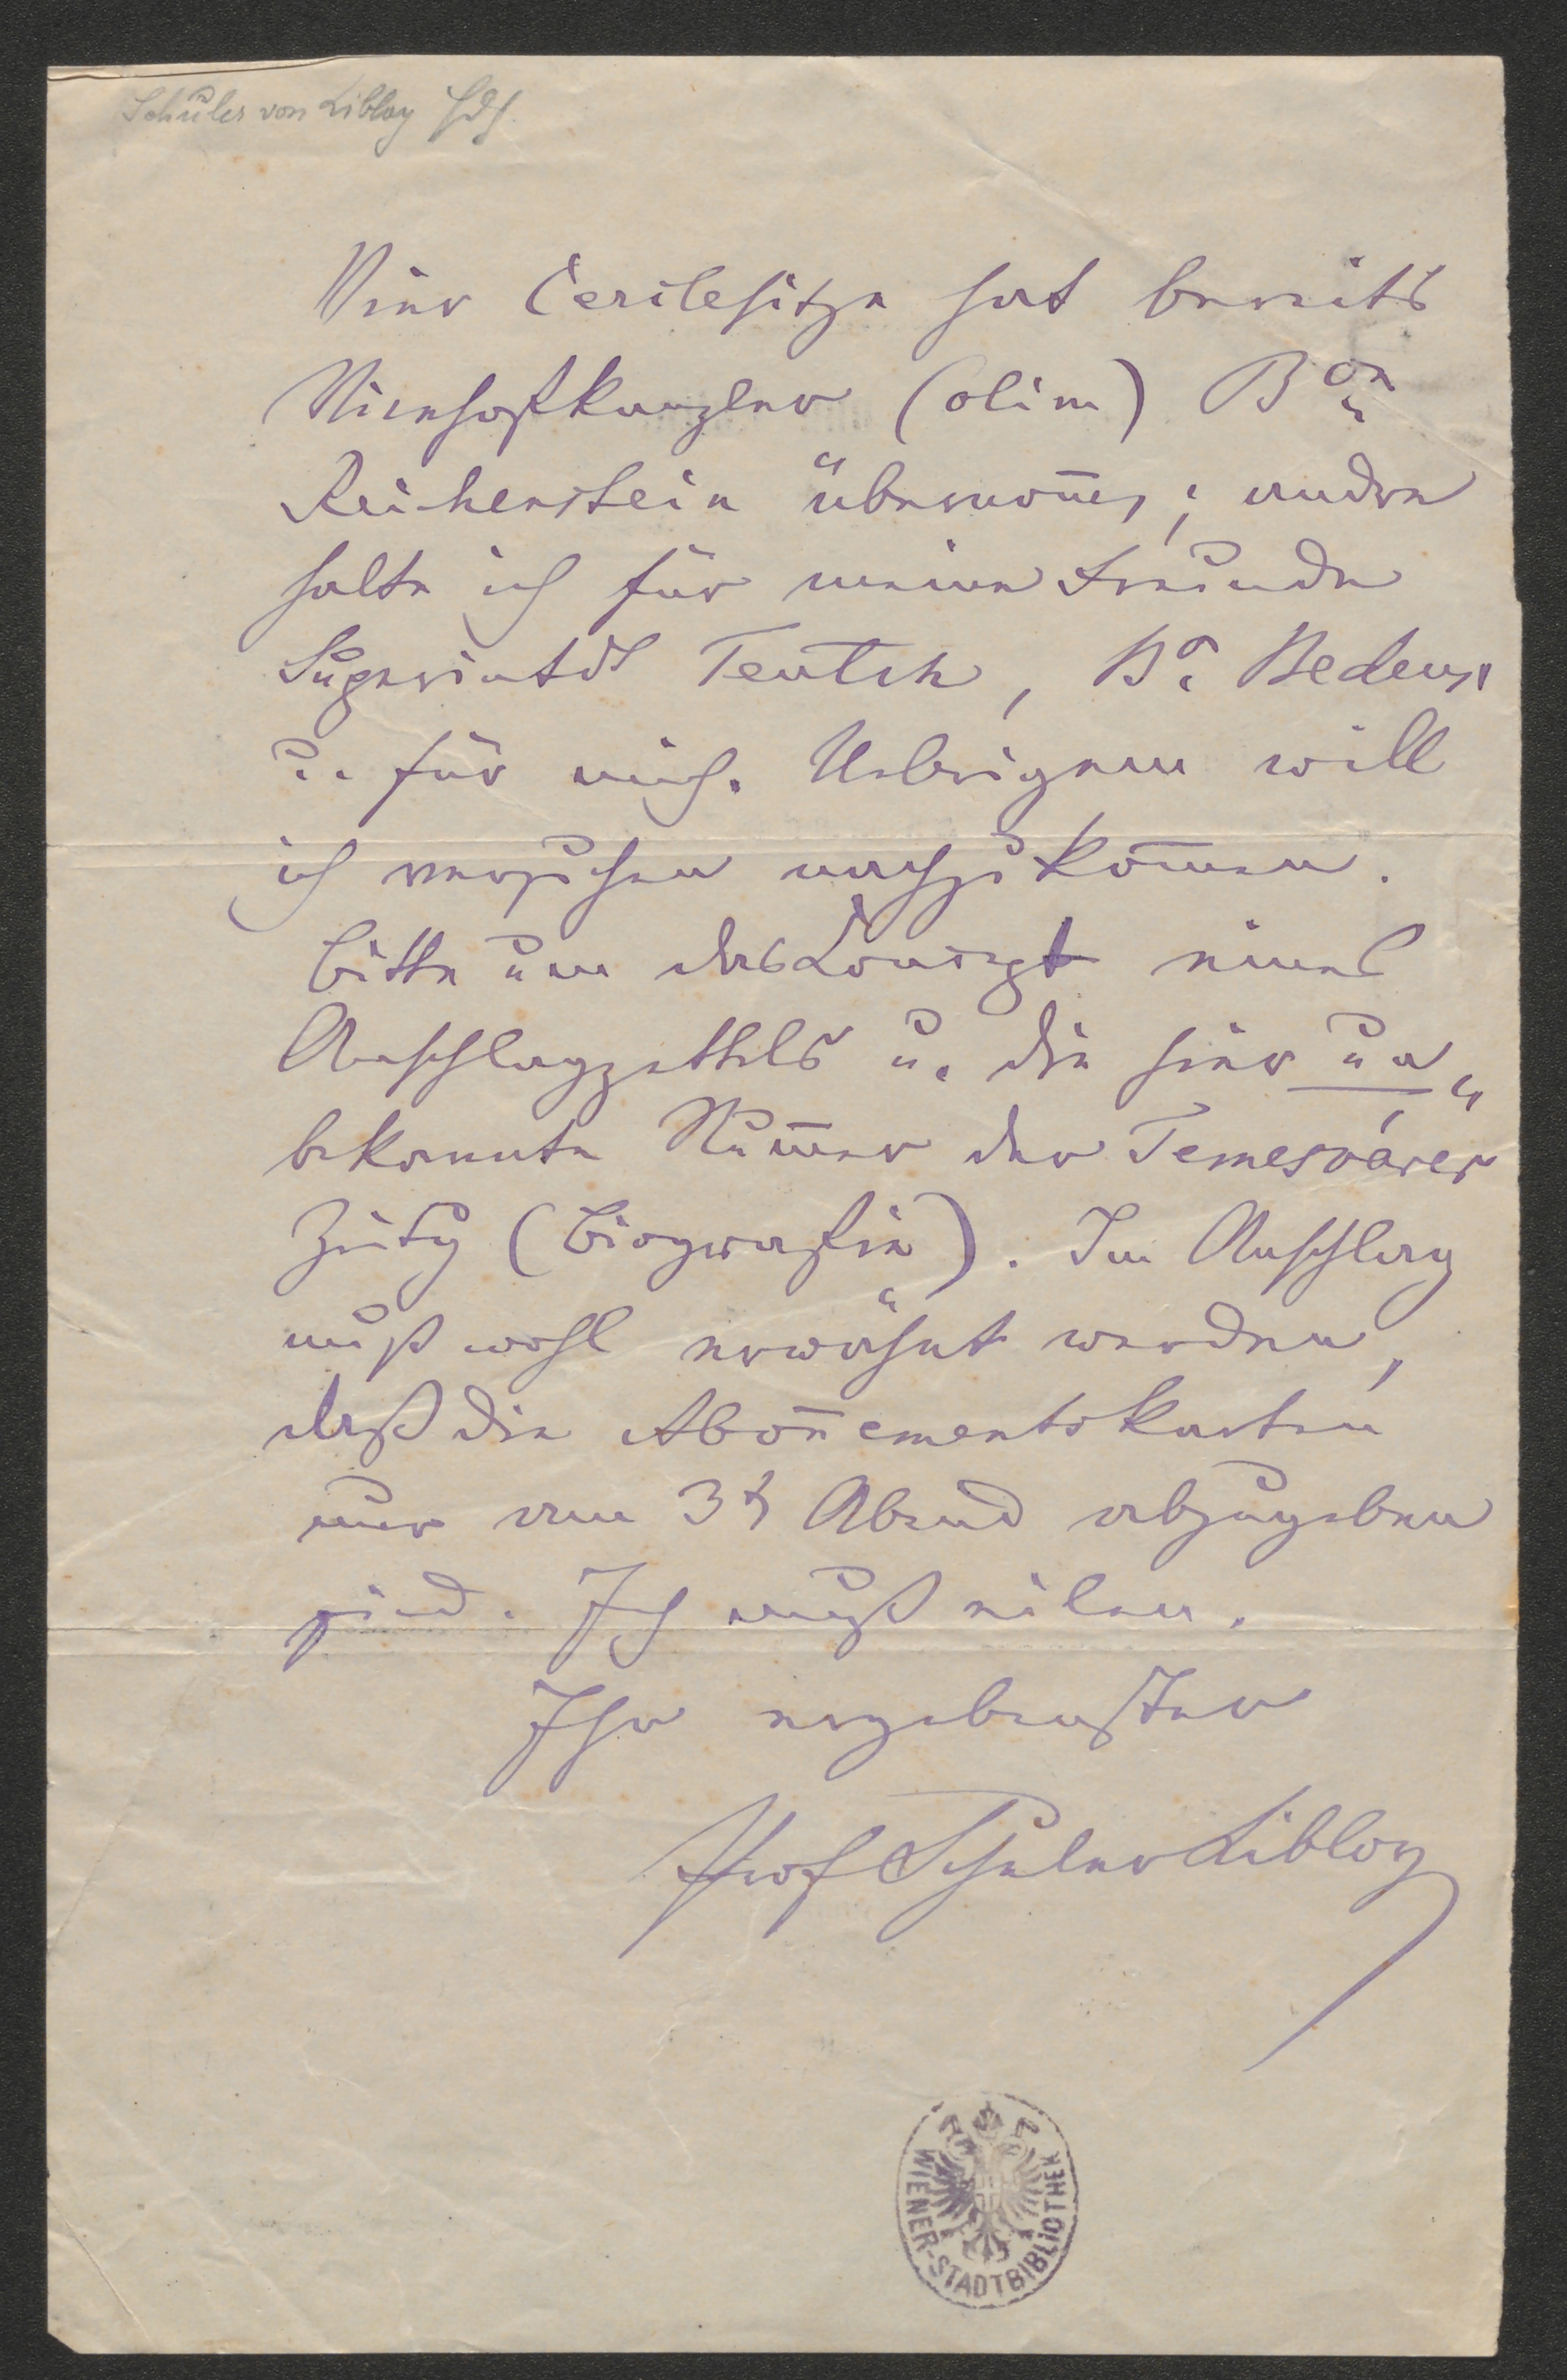 Schuler von Libloy
Vier Cerclesitze hat bereits
Vicehofkanzler (olim) Bon
Reichenstein übernom̅en; andre
halte ich für meine Freunde
Superintdt Teutsch, Br. Bedeus
u. für mich. Uebrigens will
ich versuchen nachzukom̅en.
Bitte um das Concept eines
Anschlagzettels u. die hier un„
bekannte Num̅er der Temesvárer
Zeitg (Biografie). Im Anschlag
muß wohl erwähnt werden,
daß die Abon̅ementskarten
nur am 3t Abend abzugeben
sind. Ich muß eilen.
Ihr ergebenster
Prof Schuler Libloy
WIENER-STADTBIBLIOTHEK